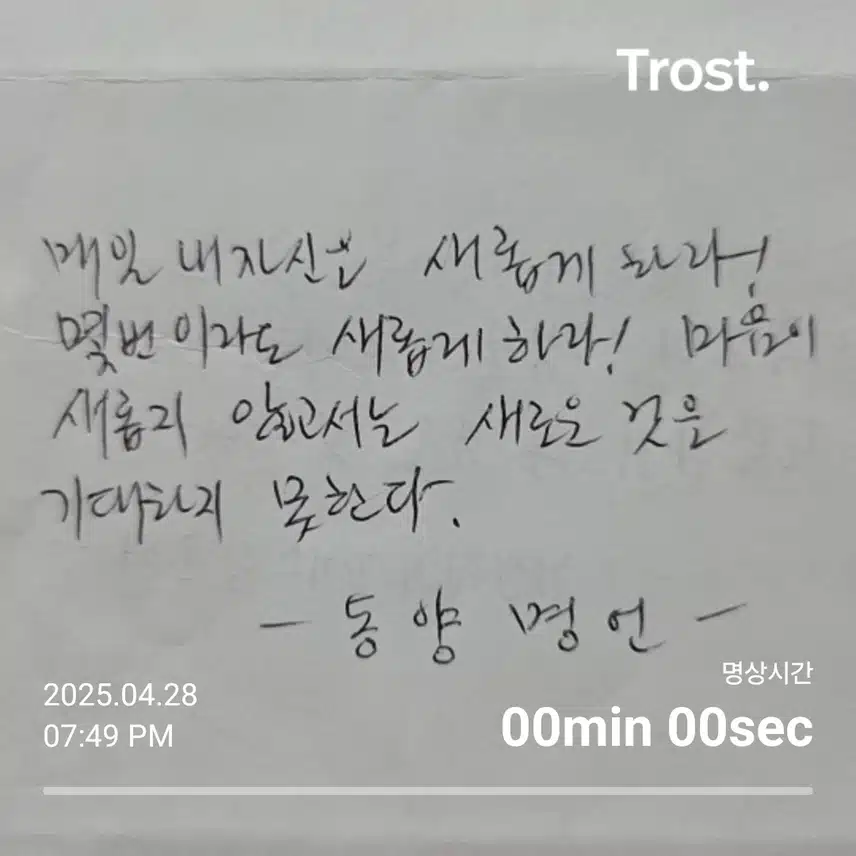 Trost.
매일 내자신을 새롭게 하라!
몇번이라도 새롭게 하라! 마음이
새롭지 않고서는 새로운 것을
기대하지 못한다.
- 동양 명언 -
명상시간
2025.04.28
00min 00sec
07:49 PM